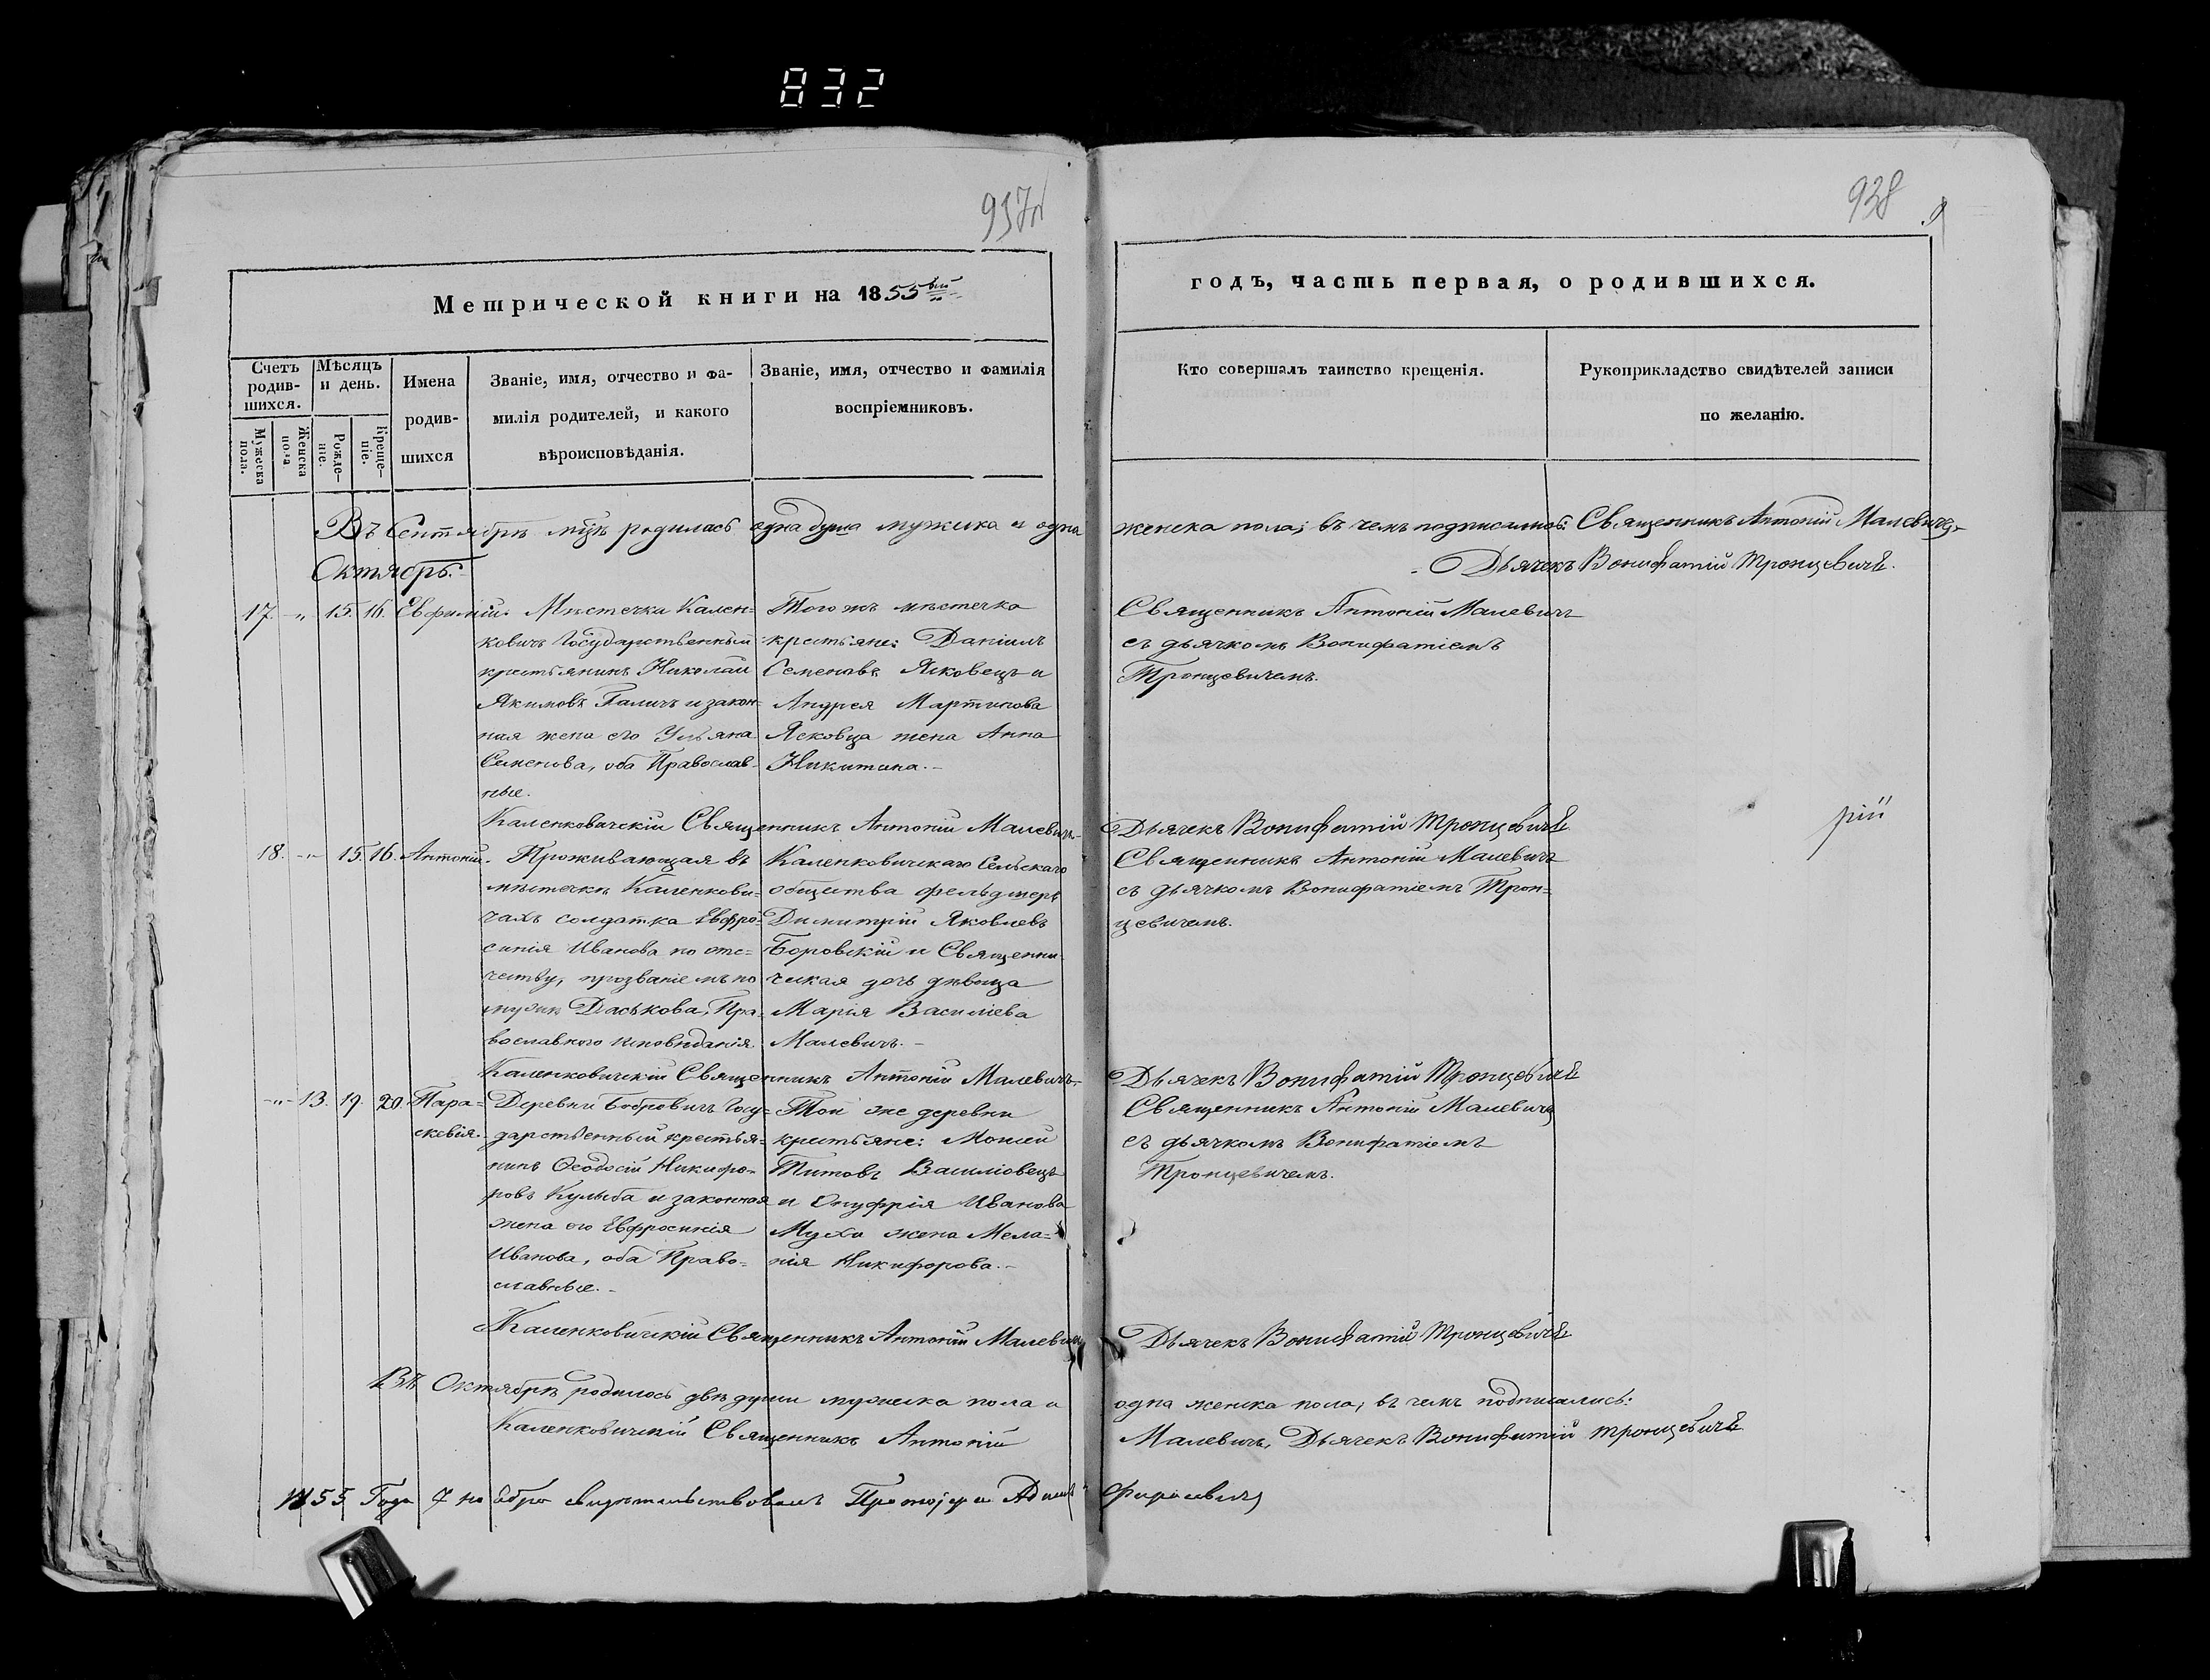 832
937
938
9
Метрической книги на 1855вый
годъ, часть первая, о родившихся.
Счетъ родив-шихся.
Мужеска пола.
Женска пола
Мѣсяцъ и день.
Рожде-ніе.
Креще-ніе.
Имена
родив-
шихся
Званіе, имя, отчество и фа-
милія родителей, и какого
вѣроисповѣданія.
Званіе, имя, отчество и фамилія
воспріемниковъ.
Кто совершалъ таинство крещенія.
Рукоприкладство свидѣтелей записи
по желанію.
Въ Сентябрѣ м҃цѣ родилась одна душа мужска и одна
женска пола; въ чемъ подписались: Священникъ Антоній Малевичъ
Дьячекъ Вонифатій Тронцевичъ.
Октябрь.
17. -„- 15. 16. Евфимій.
Мѣстечка Кален-
ковичъ Государственный
крестьянинъ Николай
Якимовъ Галичъ и закон-
ная жена его Ульяна
Семенова, оба Православ-
ные.
Того жъ мѣстечка
крестьяне: Даніилъ
Семеновъ Ясковецъ и
Андрея Мартинова
Ясковца жена Анна
Никитина.-
Священникъ Антоній Малевичъ
съ дьячкомъ Вонифатіемъ
Тронцевичемъ.
Каленковичскій Священникъ Антоній Малевичъ
Дьячекъ Вонифатій Тронцевичъ
рій
18. -„- 15. 16. Антоній.
Проживающая въ
мѣстечкѣ Каленкови-
чахъ солдатка Евфро-
синія Иванова по оте-
честву, прозваніемъ по
мужѣ Даськова, Пра-
вославнаго исповѣданія
Каленковичскаго Сельскаго
общества фельдшеръ
Димитрій Яковлевъ
Боровскій и Священни-
ческая дочь дѣвица
Марія Василіева
Малевичъ.-
Священникъ Антоній Малевичъ
съ дьячкомъ Вонифатіемъ Трон-
цевичемъ.
Каленковичскій Священникъ Антоній Малевичъ
Дьячекъ Вонифатій Тронцевичъ
-„- 13. 19. 20. Пара-
скевія.
Деревни Бобровичъ Госу-
дарственный крестья-
нинъ Ѳеодосій Никифо-
ровъ Кулыба и законная
жена его Евфросинія
Иванова, оба Право-
славные.-
Той же деревни
крестьяне: Моисей
Титовъ Василовецъ
и Онуфрія Иванова
Муха жена Мела-
нія Никифорова.-
Священникъ Антоній Малевичъ
съ дьячкомъ Вонифатіемъ
Тронцевичемъ.
Каленковичскій Священникъ Антоній Малевичъ
Дьячекъ Вонифатій Тронцевичъ
Въ Октябрѣ родилось двѣ души мужеска пола и
одна женска пола; въ чемъ подписались:
Каленковичскій Священникъ Антоній
Малевичъ, Дьячекъ Вонифатій Тронцевичъ
1855 Года 7 ноября свидѣтельствовалъ Протоіерей